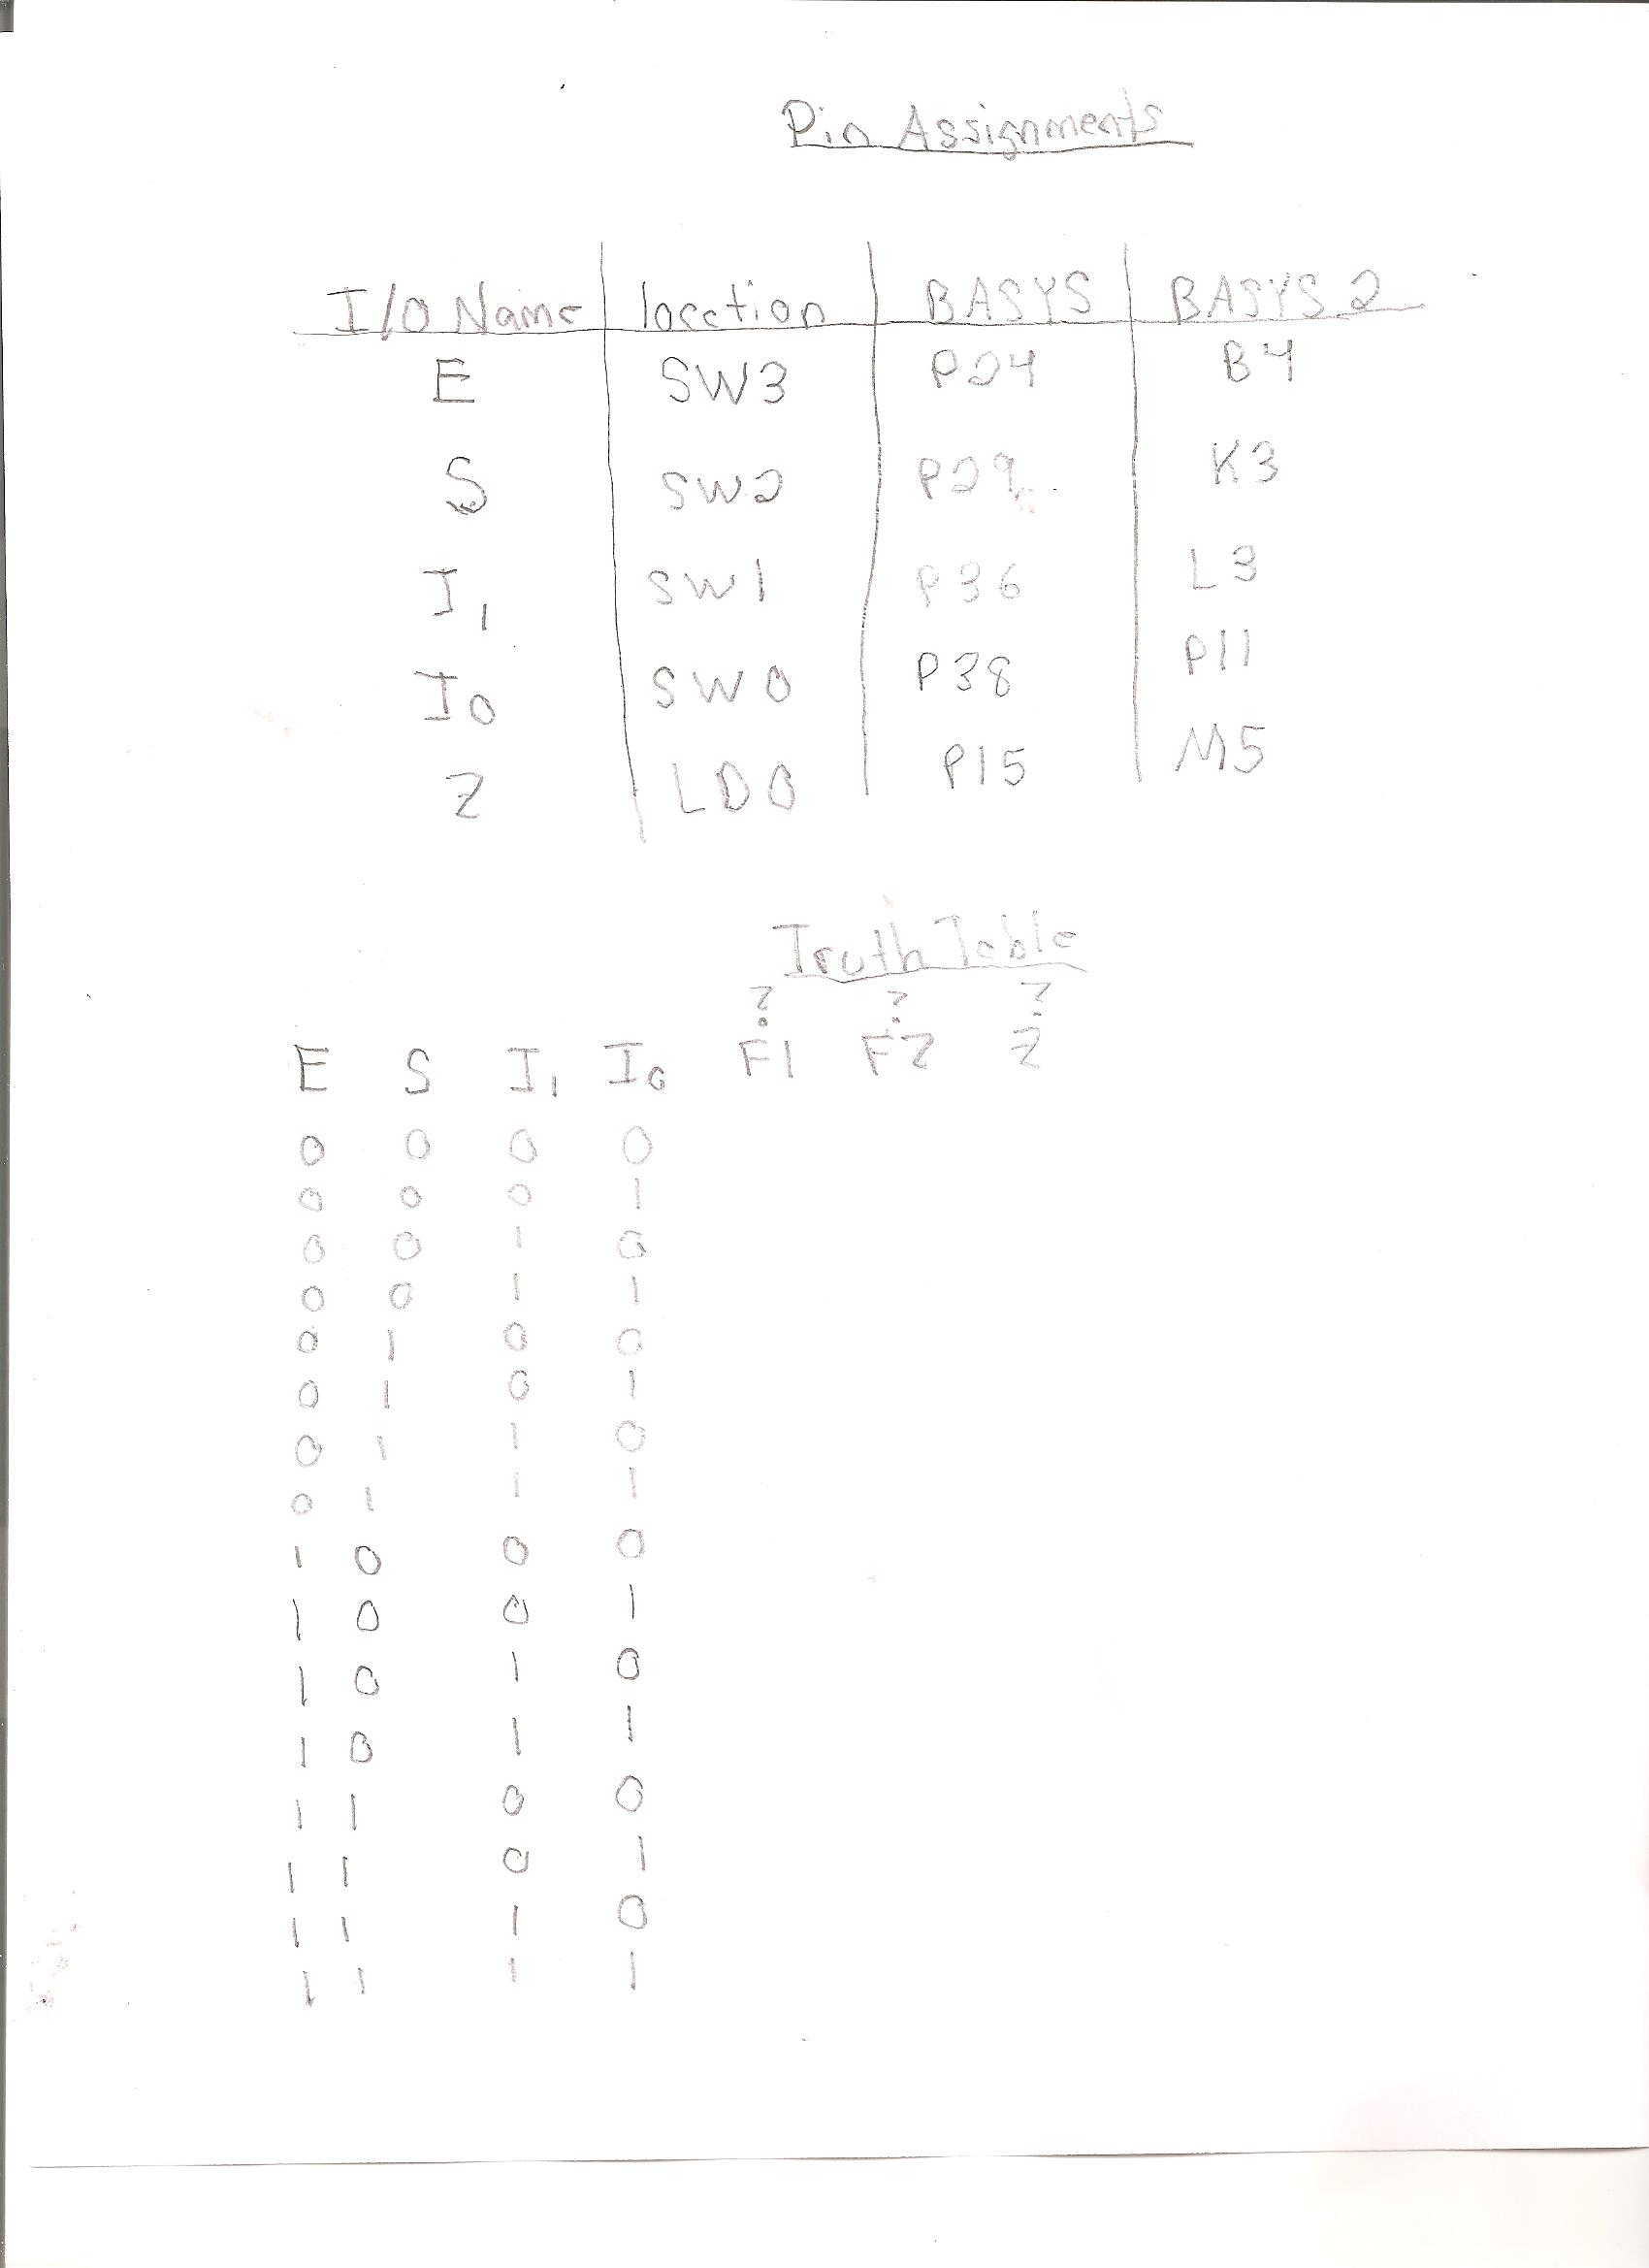 Pin Assignments
I/O Name location BASYS BASYS 2
E SW3 P24 B4
S SW2 P29 K3
I1 SW1 P36 L3
I0 SW0 P38 P11
Z LD0 P15 M5
Truth Table
? ? ?
E S I1 I0 F1 F2 Z
0 0 0 0
0 0 0 1
0 0 1 0
0 0 1 1
0 1 0 0
0 1 0 1
0 1 1 0
0 1 1 1
1 0 0 0
1 0 0 1
1 0 1 0
1 0 1 1
1 1 0 0
1 1 0 1
1 1 1 0
1 1 1 1